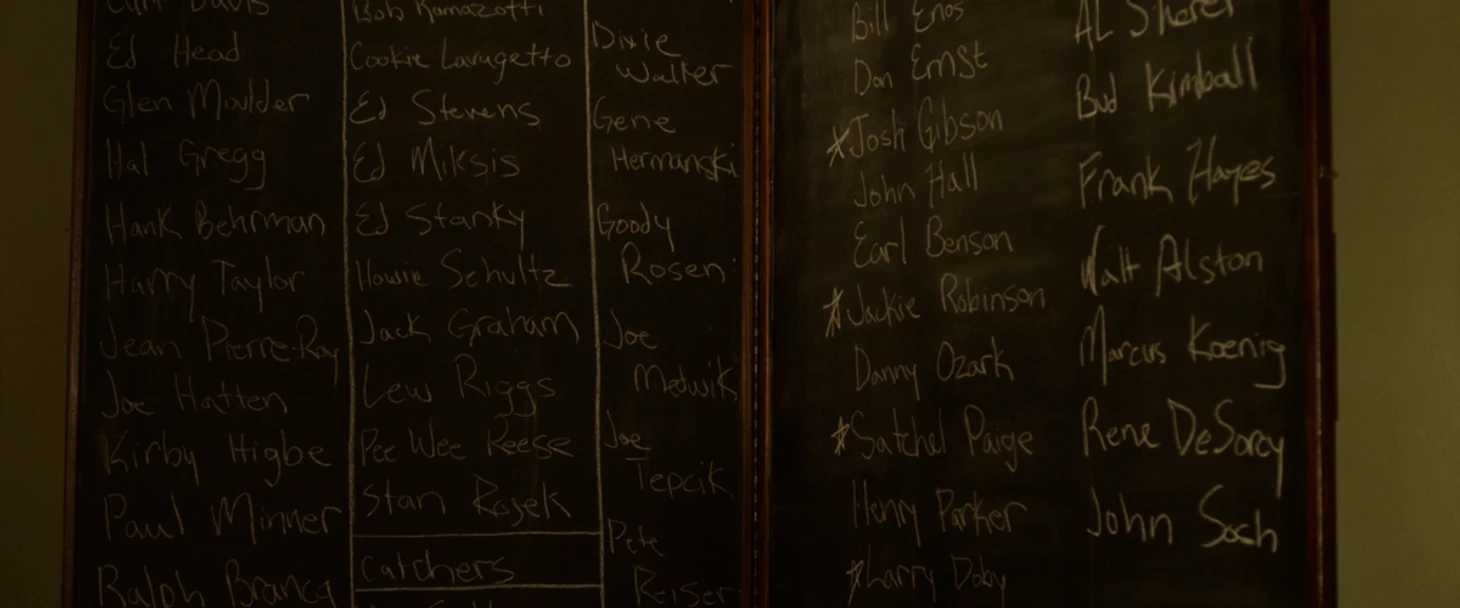 Curt Davis
Ed Head
Glen Moulder
Hal Gregg
Hank Behrman
Harry Taylor
Jean Pierre-Roy
Joe Hatten
Kirby Higbe
Paul Minner
Ralph Branca
Bob Ramazotti
Cookie Lavagetto
Ed Stevens
Ed Miksis
Ed Stanky
Howie Schultz
Jack Graham
Lew Riggs
Pee Wee Reese
Stan Rojek
Catchers
Dixie
Walker
Gene
Hermanski
Goody
Rosen
Joe
Medwik
Joe
Tepcik
Pete
Reiser
Bill Enos
Don Ernst
*Josh Gibson
John Hall
Earl Benson
*Jackie Robinson
Danny Ozark
*Satchel Paige
Henry Parker
*Larry Doby
AL Sherer
Bud Kimball
Frank Hayes
Walt Alston
Marcus Koenig
Rene DeSorcy
John Soch